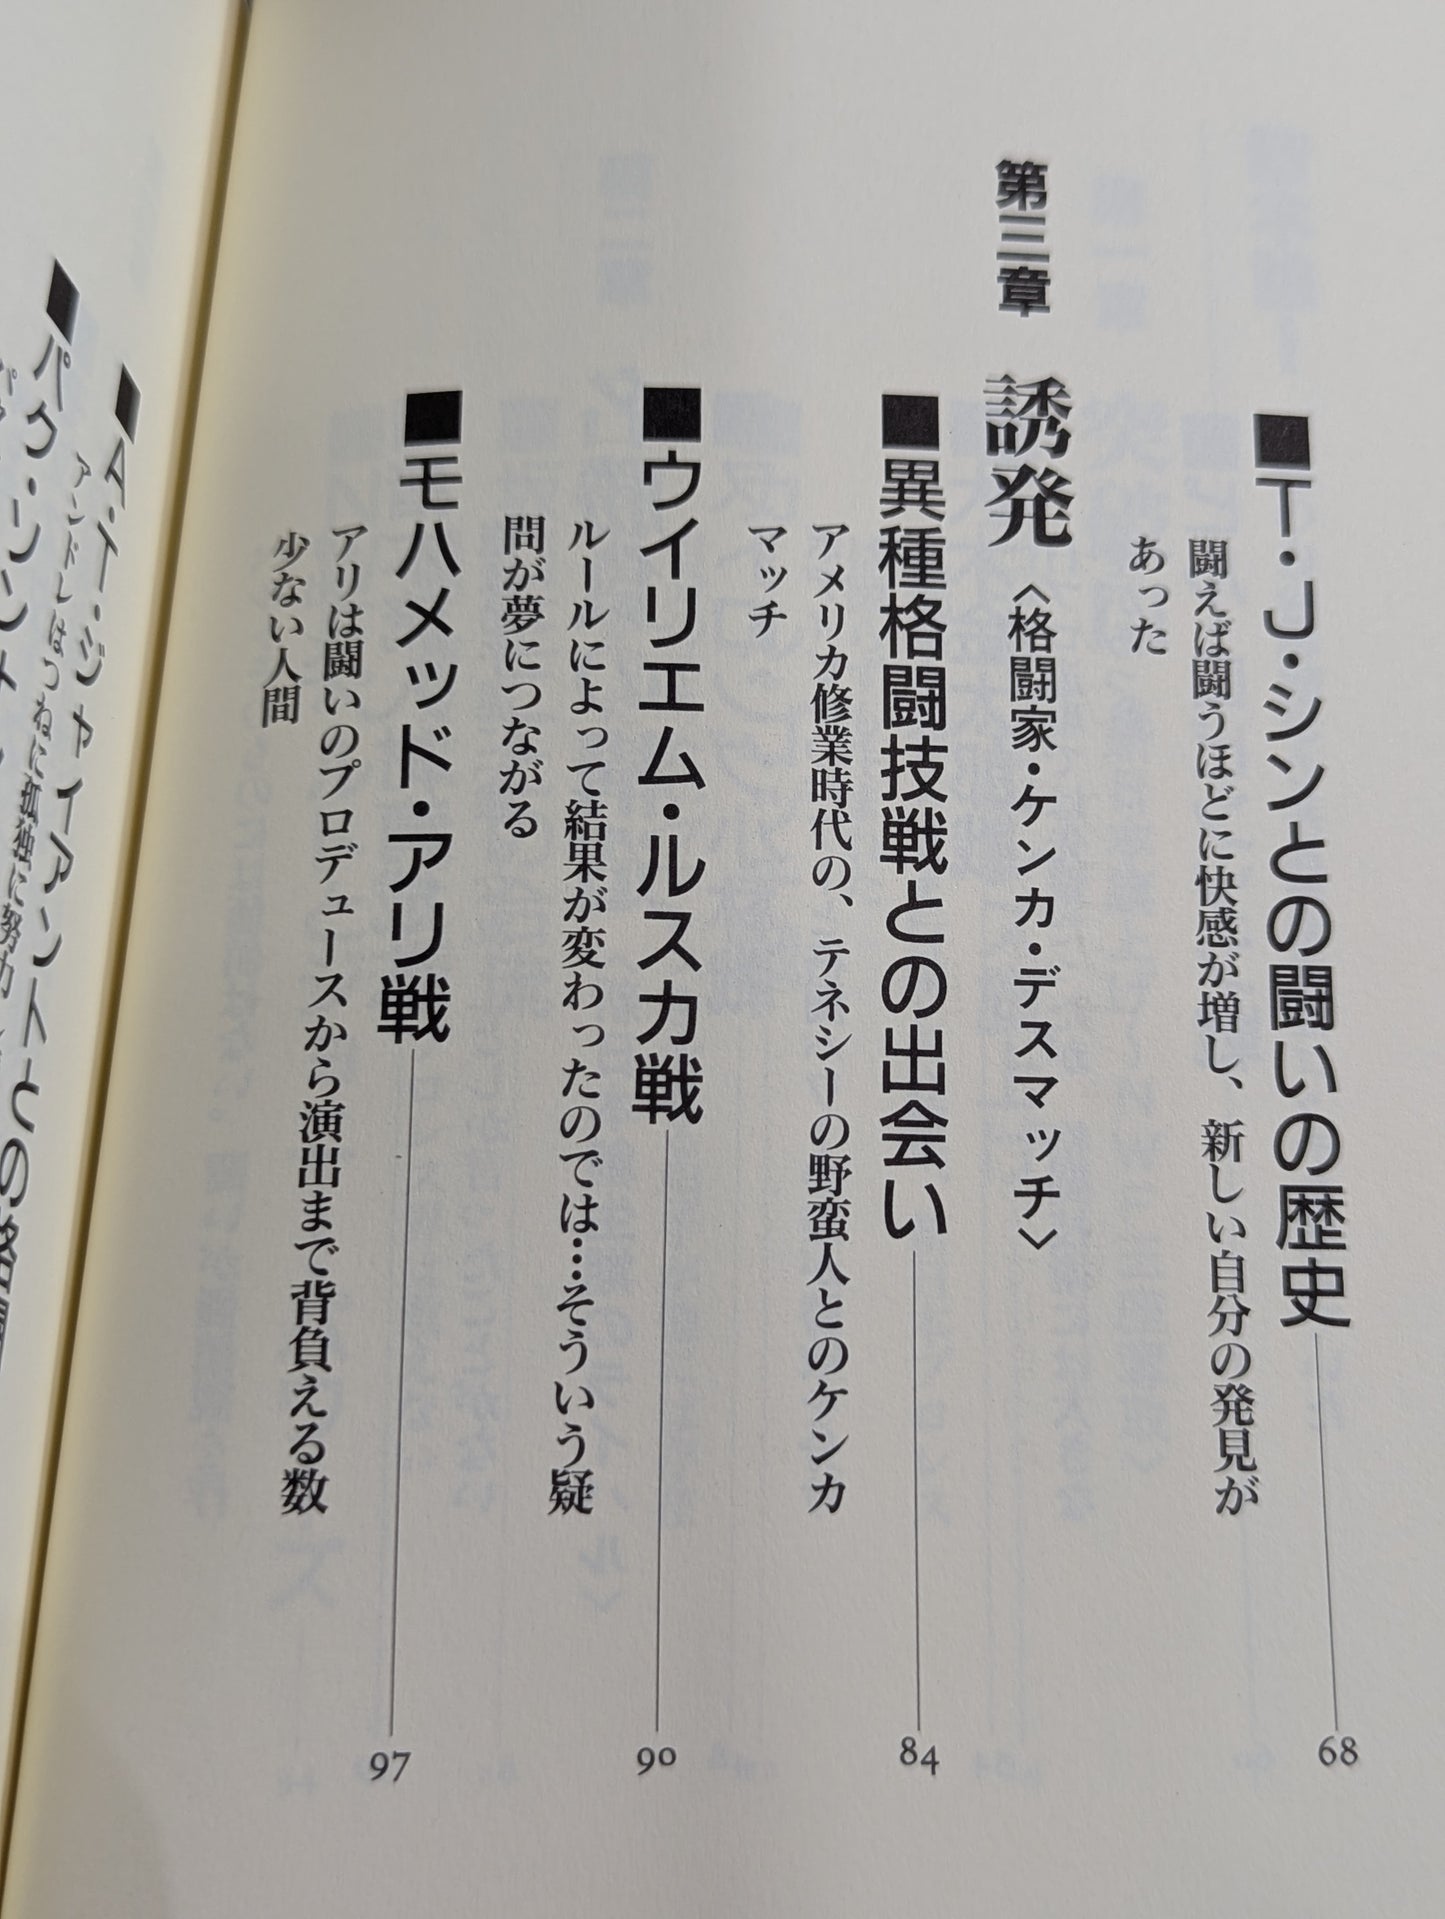 ■T・J・シンとの闘いの歴史 68
闘えば闘うほどに快感が増し、新しい自分の発見が
あった
第三章 誘発 〈格闘家・ケンカ・デスマッチ〉
■異種格闘技戦との出会い 84
アメリカ修業時代の、テネシーの野蛮人とのケンカ
マッチ
■ウイリエム・ルスカ戦 90
ルールによって結果が変わったのでは…そういう疑
問が夢につながる
■モハメッド・アリ戦 97
アリは闘いのプロデュースから演出まで背負える数
少ない人間
■A・T・ジャイアントとの格闘
アンドレはつねに孤独に努力
■パク・ソン